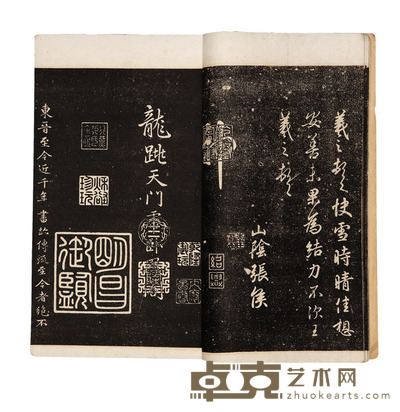 羲之頓首快雪時晴佳想
安善未果為結力不次王
羲之頓首
山陰張侯
龍跳天門
明昌御覽
東晉至今近千年書跡傳流至今者絕不
卓克艺术网
www.zhuokearts.com